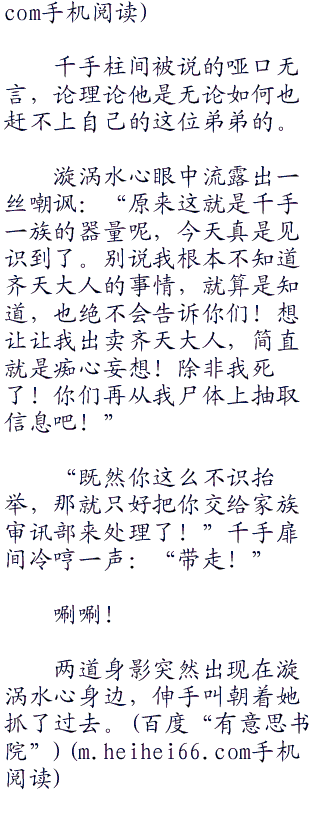 com手机阅读)
千手柱间被说的哑口无
言，论理论他是无论如何也
赶不上自己的这位弟弟的。
漩涡水心眼中流露出一
丝嘲讽：“原来这就是千手
一族的器量呢，今天真是见
识到了。别说我根本不知道
齐天大人的事情，就算是知
道，也绝不会告诉你们！想
让让我出卖齐天大人，简直
就是痴心妄想！除非我死
了！你们再从我尸体上抽取
信息吧！”
“既然你这么不识抬
举，那就只好把你交给家族
审讯部来处理了！”千手扉
间冷哼一声：“带走！”
唰唰！
两道身影突然出现在漩
涡水心身边，伸手叫朝着她
抓了过去。(百度“有意思书
院”) (m.heihei66.com手机
阅读)